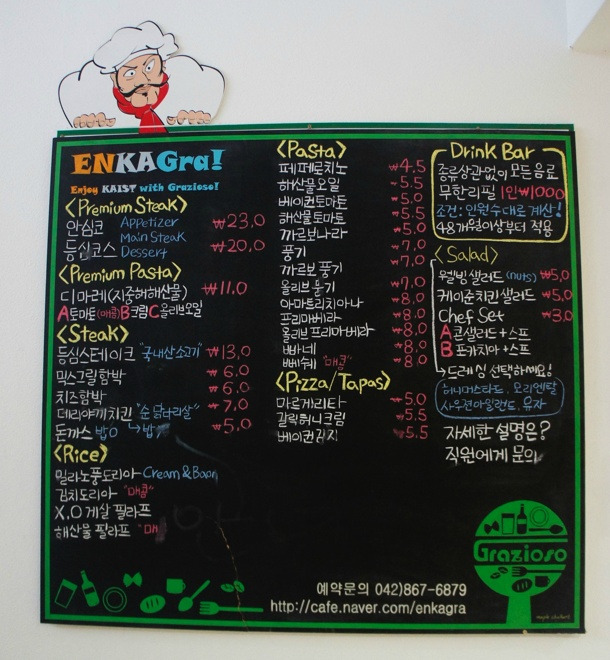 ENKAGra!
Enjoy KAIST with Grazioso!
<Premium Steak>
안심코 Appetizer ₩23.0
Main Steak
등심코스 Dessert ₩20.0
<Premium Pasta>
디마레(지중해해산물) ₩11.0
A토마토(매콤)B크림C올리브오일
<Steak>
등심스테이크 "국내산소고기" ₩13.0
믹스그릴함박 ₩6.0
치즈함박 ₩6.0
데리야끼치킨 "순 닭다리살" ₩7.0
돈까스 밥O ↳밥 ₩5.0
<Rice>
밀라노풍도리아 Cream & Bacon
김치도리아 "매콤"
X.O 게살 필라프
해산물 필라프 "매
<Pasta>
페페로치노 ₩4.5
해산물오일 ₩5.5
베이컨토마토 ₩5.0
해산물토마토 ₩5.5
까르보나라 ₩5.0
풍기 ₩7.0
까르보 풍기 ₩7.0
올리브 풍기 ₩7.0
아마트리치아나 ₩8.0
프리마베라 ₩8.0
올리브 프리마베라 ₩8.0
빠네 ₩8.0
뻬쉐 "매콤" ₩8.0
<Pizza/Tapas>
마르게리타 ₩5.0
갈릭허니크림 ₩5.5
베이컨감자 ₩5.5
Drink Bar
종류상관없이 모든 음료
무한리필 1인₩1000
조건: 인원수대로 계산!
48개월이상부터 적용
<Salad>
월넛빈샐러드(nuts) ₩5.0
케이준치킨샐러드 ₩5.0
Chef Set ₩3.0
A 콘샐러드+스프
B 포카치아+스프
↳드레싱 선택하세요!
허니머스타드, 오리엔탈
사우젼아일랜드, 유자
자세한 설명은?
직원에게 문의
Grazioso
예약문의 042)867-6879
http://cafe.naver.com/enkagra